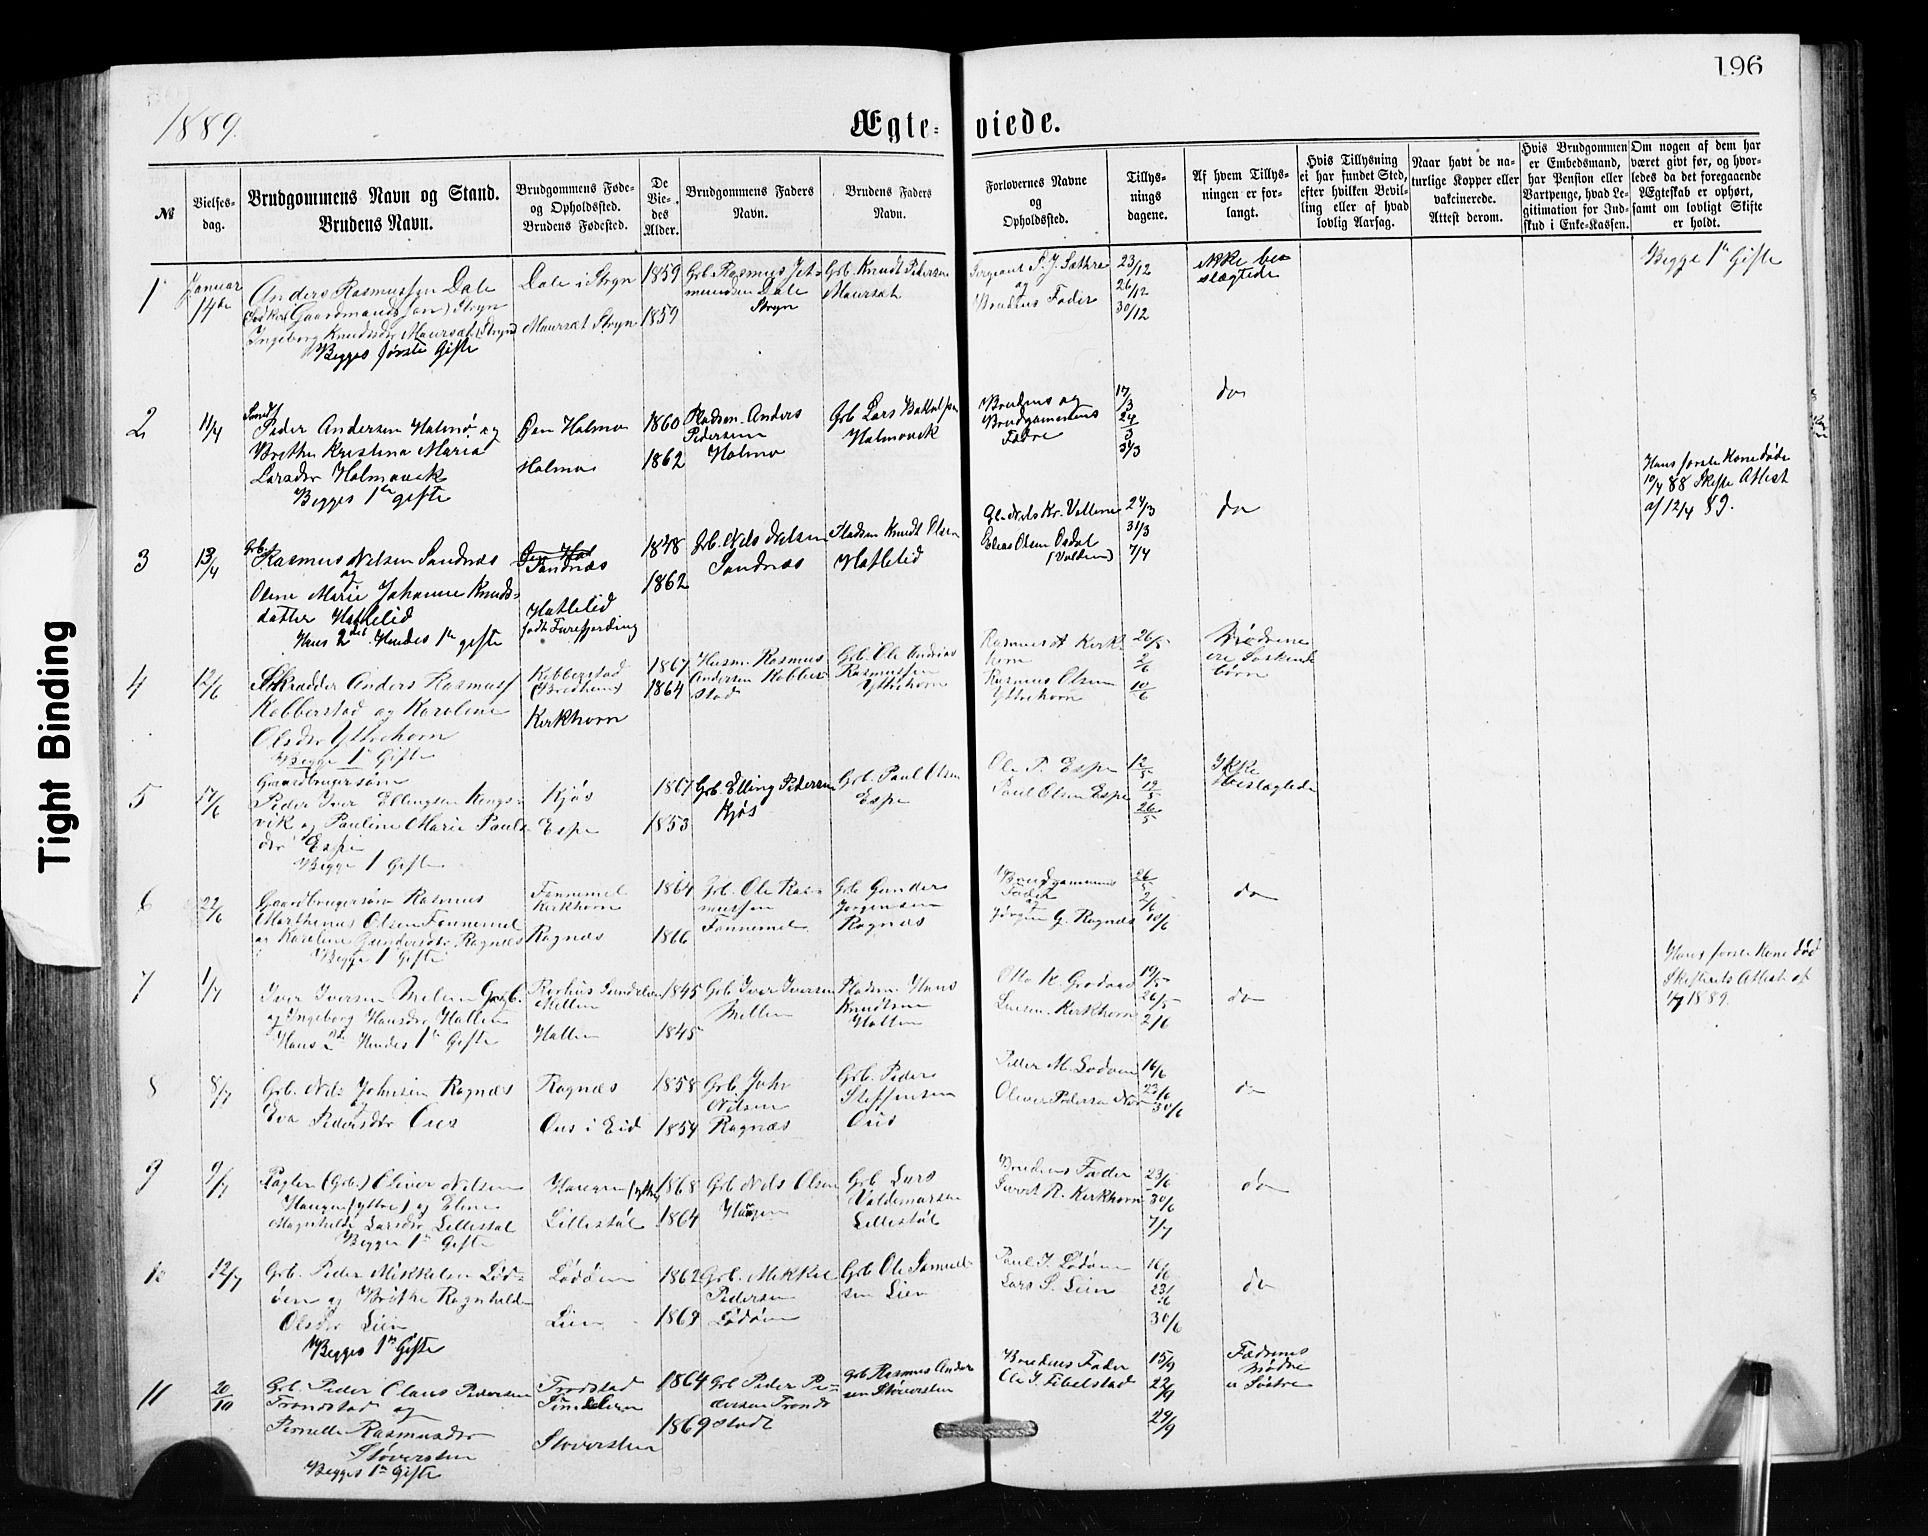 196
1889.
Ægteviede.
№
Vielsesdag.
Brudgommens Navn og Stand.
Brudens Navn.
Brudgommens Føde-
og Opholdssted.
Brudens Fødested.
De
Vie-
des
Alder.
Brudgommens Faders
Navn.
Brudens Faders
Navn.
Forlovernes Navne
og
Opholdssted.
Tillys-
nings
dagene.
Af hvem Tillys-
ningen er for-
langt.
Hvis Tillysning
ei har fundet Sted,
efter hvilken Bevil-
ling eller af hvad
lovlig Aarsag.
Naar havt de na-
turlige Kopper eller
vakcinerede.
Attest derom.
Hvis Brudgommen
er Embedsmand,
har Pension eller
Vartpenge, hvad Le-
gitimation for Ind-
skud i Enke-Kassen.
Om nogen af dem har
været givt før, og hvor-
ledes da det foregaaende
Ægteskab er ophørt,
samt om lovligt Skifte
er holdt.
1
Januar
14de
Anders Rasmussen Dale
Gaardmandssøn) Stryn
Ingeborg Knudsdr Maursæt (Stryn)
Begges første Gifte
Dale i Stryn
Maursæt Stryn
1859
1859
Gb. Rasmus
Dale
Stryn
Gb. Knudt Pedersen
Maursæt
Sergeant P. J. Sæthre
og
Brudens Fader
23/12
26/12
30/12
ikke be-
slægtede
Begge 1ste Gifte
2
11/4
Peder Andersen Holmø og
Brithe Kristina Maria
Larsdr Holmøvik
Begges 1ste gifte
Øen Holmø
Holmø
1860
1862
Pladsm. Anders
Pedersen
Holmø
Gb Lars
Holmøvik
Brudens og
Brudgommens
Fædre
17/3
24/3
31/3
do
3
13/4
Gb.
Rasmus Nilsen Sandnæs
og
Oline Marie Johanne Knuds-
datter Hatlelid
Hans 2det Hendes 1ste gifte
Sandnæs
Hatlelid
født Furefjording
1848
1862
Gb. Nils Nilsen
Sandnæs
Pladsm Knudt Olsen
Hatlelid
Elias Olsen Osdal
(Volden)
24/3
31/3
7/4
do
Hans første Kone døde
10/4 88 Skifte Attest
af 12/4 89.
4
12/6
Skrædder Anders Rasmuss
Kobberstad og Karoline
Olsdr Yttrehorn
Begge 1ste Gifte
Kobberstad
(Bredheim)
Kirkhorn
1867
1864
Husm. Rasmus
Andersen Kobber-
stad
Gb. Ole Andreas
Rasmussen
Yttrehorn
Rasmus A Kirk-
horn
Rasmus Olsen
Yttrehorn
26/5
2/6
10/6
Mødrene
ere Søskende
børn
5
17/6
Gaardbrugersøn
Peder Iver Ellingsen Kongs-
vik og Pauline Marie Pauls-
dr Espe
Begge 1 Gifte
Kjøs
Espe
1867
1853
Gb Elling Pedersen
Kjøs
Gb. Paul Olsen
Espe
Ole P. Espe
Paul Olsen Espe
12/5
19/5
26/5
Ikke
beslægtede
6
22/6
Gaardbrugersøn Rasmus
Marthinus Olsen Fannemel
og Karoline Gundersdr Ragnæs
Begge 1 Gifte
Fannemel
Kirkhorn
Ragnæs
1864
1866
Gb. Ole Ras-
mussen
Fannemel
Gb. Gunder
Jørgensen
Ragnæs
Brudgommens
Fader
og
Jørgen G. Ragnæs
26/5
2/6
10/6
do
7
1/7
Iver Iversen Melin Gaardb.
og Ingeborg Hansdr Hallen
Hans 2det Hendes 1ste Gifte
Mellen
Hallen
1845
1845
Gb Iver Iversen
Mellen
Pladsm. Hans
Knudtsen
Hallen
Otto K. Grodaas
Kirkhorn
19/5
26/5
2/6
do
Hans første Kone død
Skifterets Attest af
1/7 1889.
8
8/7
Gb. Nils Johnsen Ragnæs
og
Eva Pedersdr Øies
Ragnæs
Øus i Eid
1858
1854
Gb. John
Nilsen
Ragnæs
Gb. Peder
Steffensen
Peder M. Lødøen
Oliver Pedersen
16/6
23/6
30/6
do
9
9/7
(Gb.) Oliver Nilsen
Haugen (yttre) og Eline
Magnhilde Larsdr Lillestøl
Begge 1ste Gifte
Haugen (yttre)
Lillestøl
1868
1864
Gb Nils Olsen
Haugen
Gb Lars
Valdemarsen
Lillestøl
Brudens Fader
R. Kirkhorn
23/6
30/6
7/7
do
10
12/7
Gb. Peder Mikkelsen Lød-
øen og Brithe Ragnhilde
Olsdr Lien
Begges 1ste Gifte
Lødøen
Lien
1862
1869
Gb. Mikkel
Pedersen
Lødøen
Gb Ole Samuel-
sen Lien
Paul J. Lødøen
Lars S. Lien
16/6
23/6
30/6
do
11
20/10
Gb. Peder Claus Pedersen
Trondstad og
Pernille Rasmusdr
Støversten
Begges 1ste Gifte
Trodstad
Støversten
1864
1869
Gb Peder Pe-
dersen Trond-
stad
Gb Rasmus Ander-
sen Støversten
Brudens Fader
Ole J. Fibelstad
15/9
22/9
29/9
Fædrenes
Mødre
er Søstre
Tight Binding